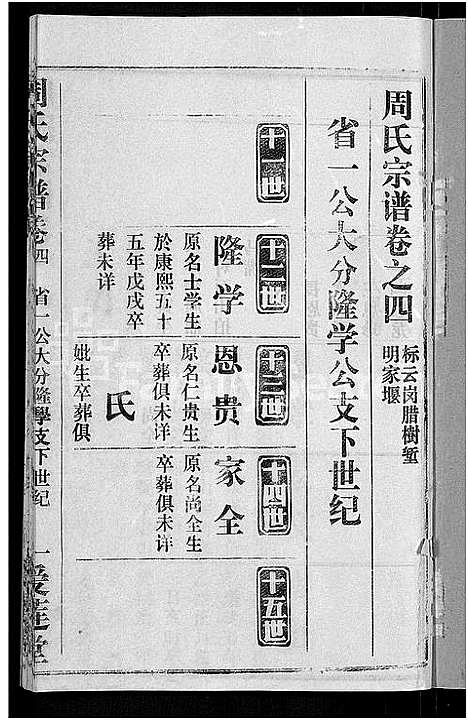 周氏宗谱卷之四
标云岗腊樹堑
明家堰
省一公大分隆学公支下世纪
十一世
十二世
十三世
十四世
十五世
隆学
原名士学生
於康熙五十
五年戊戌卒
葬未详
恩贵
原名仁贵生
卒葬俱未详
氏
妣生卒葬俱
家全
原名尚全生
卒葬俱未详
周氏宗谱卷四
省一公大分隆學支下世纪
一
爱莲堂